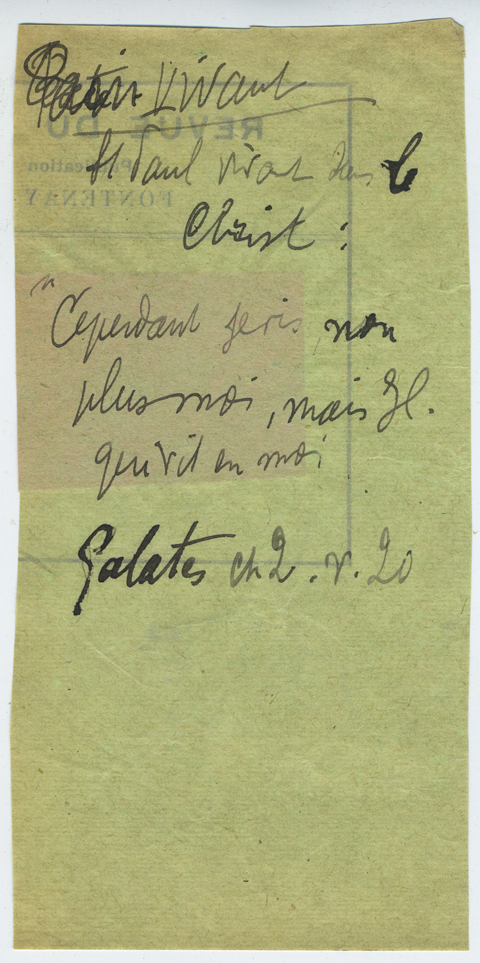 Vivant
St Paul vivant dans le
Christ :
"Cependant je vis, non
plus moi, mais J.C.
qui vit en moi
Galates ch 2 . v. 20
REVUE DU
Publication
FONTENAY